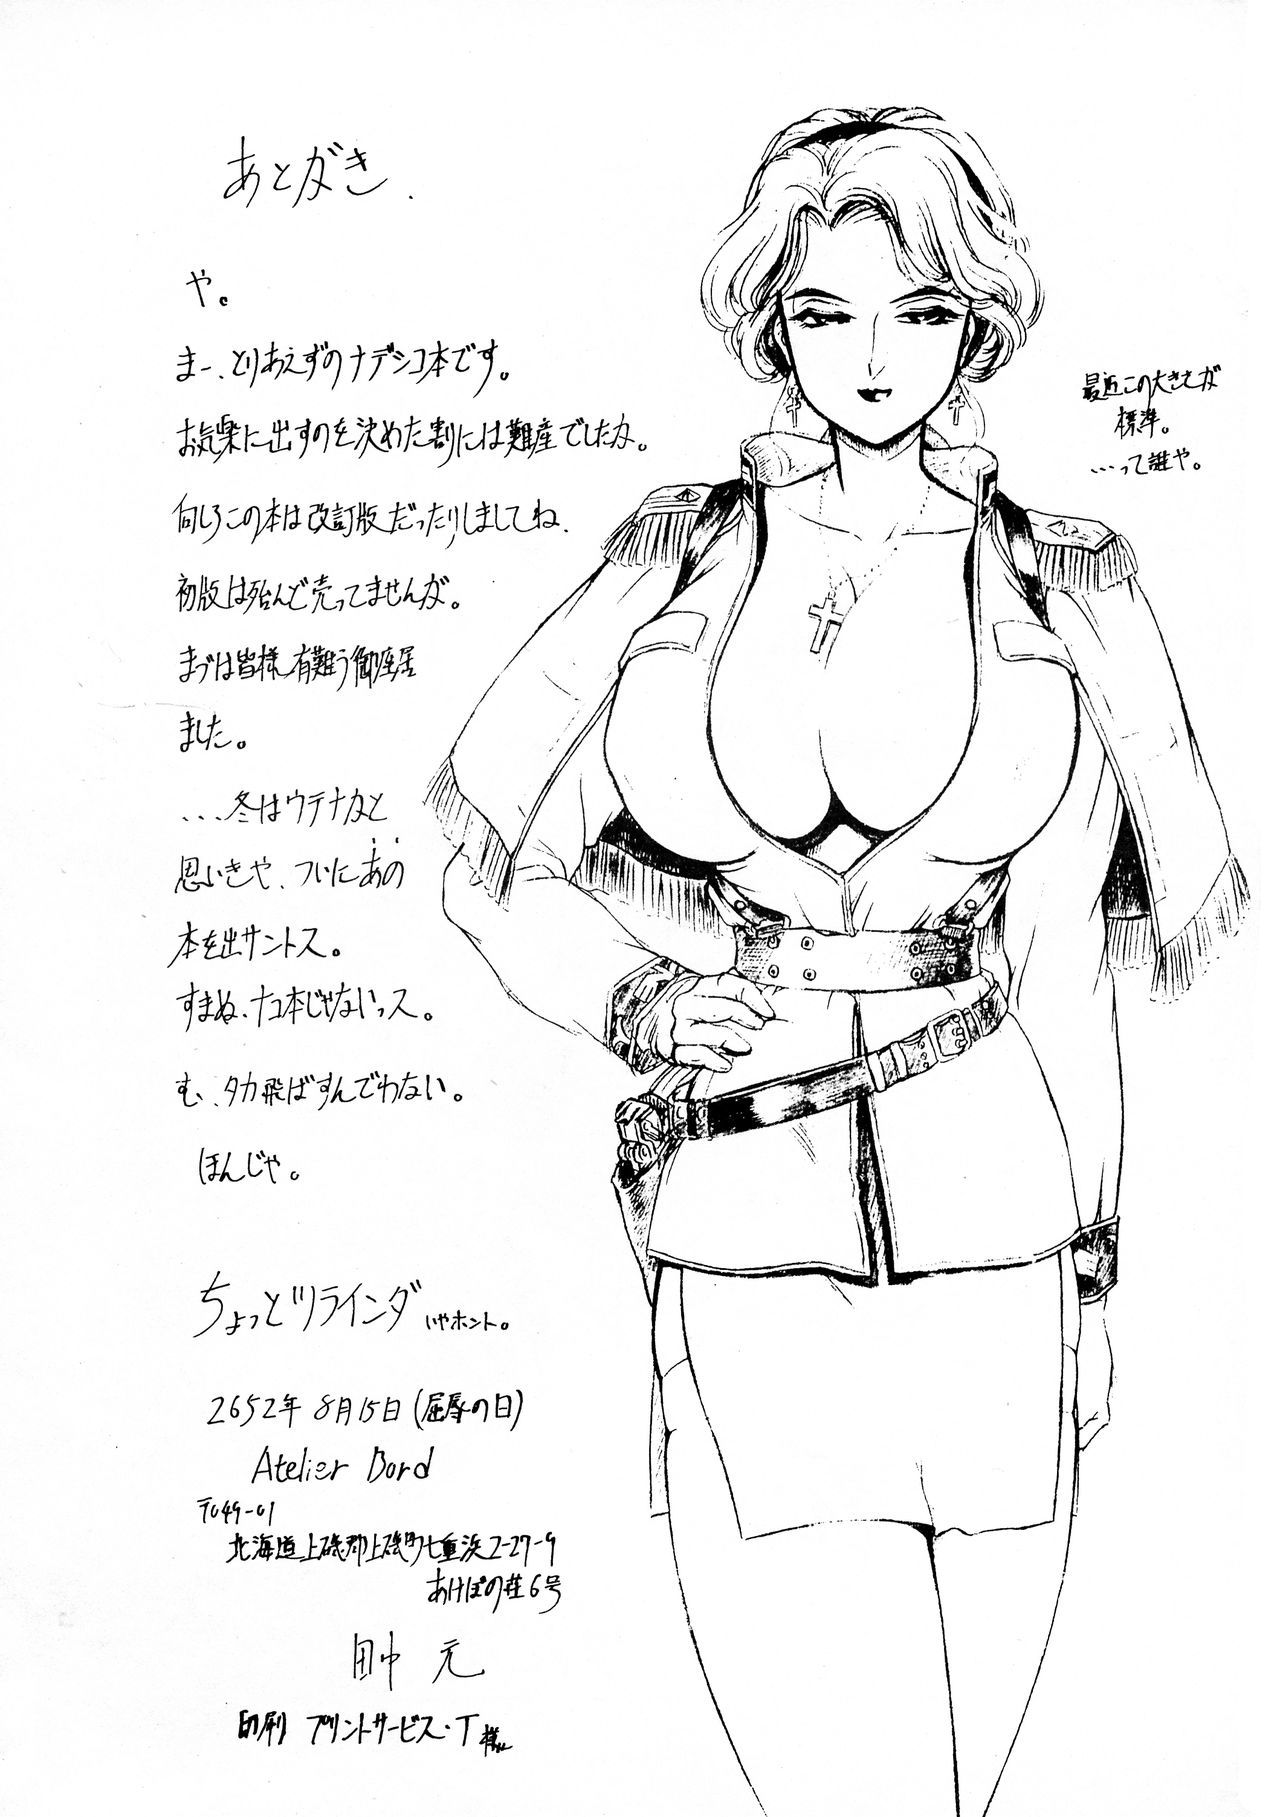 あとがき.
や。
まー、とりあえずのナデシコ本です。
お気楽に出すのを決めた割には難産でしたな。
何しろこの本は改訂版だったりしましてね、
初版は殆んど売ってませんが。
まづは皆様有難う御座居
ました。
...冬はウテナかと
思いきや、ついにあの
本を出サントス。
すまぬ、ナコ本じゃないっス。
む、タカ飛ばすんでわない。
ほんじゃ。
ちょっとツラインダ いやホント。
2652年 8月15日(屈辱の日)
Atelier Bord
〒049-01
北海道上磯郡上磯町七重浜2-27-9
あけぼの荘6号
田中 元
印刷 プリントサービス・T様
最近この大きさが
標準。
...って誰や。